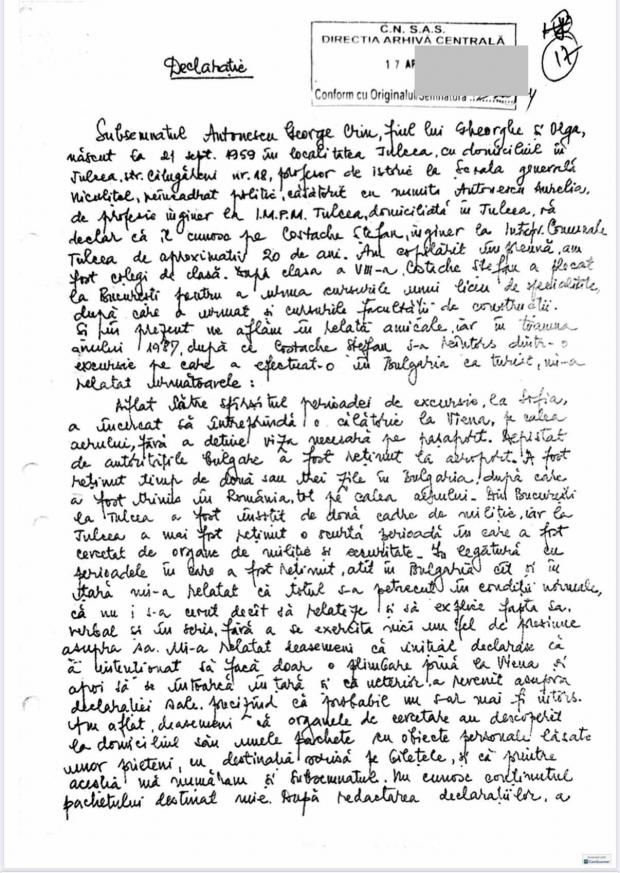 C.N. S.A.S.
DIRECTIA ARHIVĂ CENTRALĂ
17 AP
Conform cu Originalul Semnatura
17
Declarație
Subsemnatul Antonescu George Crin, fiul lui Gheorghe și Olga,
născut la 21 sept. 1959 în localitatea Tulcea, cu domiciliul în
Tulcea, str. Călugăreni nr. 18, profesor de istorie la Școala generală
Niculițel, neîncadrat politic, căsătorit cu numita Antonescu Aurelia,
de profesie inginer la I.M.P.M. Tulcea, domiciliată în Tulcea, vă
declar că îl cunosc pe Costache Ștefan, inginer la Intepr. Comunale
Tulcea de aproximativ 20 de ani. Am copilărit împreună, am
fost colegi de clasă. După clasa a VIII-a, Costache Ștefan a plecat
la București pentru a urma cursurile unui liceu de specialitate,
după care a urmat și cursurile facultății de construcții.
Și în prezent ne aflăm în relații amicale, iar în toamna
anului 1987, după ce Costache Ștefan s-a reîntors dintr-o
excursie pe care a efectuat-o în Bulgaria ca turist, mi-a
relatat următoarele :
Aflat către sfîrșitul perioadei de excursie, la Sofia,
a încercat să întreprindă o călătorie la Viena, pe calea
aerului, fără a deține viza necesară pe pașaport. Depistat
de autoritățile bulgare a fost reținut la aeroport. A fost
reținut timp de două sau trei zile în Bulgaria, după care
a fost trimis în România, tot pe calea aerului. Din București
la Tulcea a fost însoțit de două cadre de miliție, iar la
Tulcea a mai fost reținut o scurtă perioadă în care a fost
cercetat de organe de miliție și securitate. În legătură cu
perioadele în care a fost reținut, atît în Bulgaria cît și în
țară mi-a relatat că totul s-a petrecut în condiții normale,
că nu i s-a cerut decît să relateze și să explice fapta sa,
verbal și în scris, fără a se exercita nici un fel de presiune
asupra sa. Mi-a relatat deasemeni că inițial declarase că
a intenționat să facă doar o plimbare pînă la Viena și
apoi să se întoarcă în țară și că ulterior a revenit asupra
declarației sale, precizînd că probabil nu s-ar mai fi întors.
Am aflat, deasemeni că organele de cercetare au descoperit
la domiciliul său unele pachete cu obiecte personale lăsate
unor prieteni, cu destinația scrisă pe bilețele, și că printre
aceștia mă număram și subsemnatul. Nu cunosc conținutul
pachetului destinat mie. După redactarea declarațiilor, a